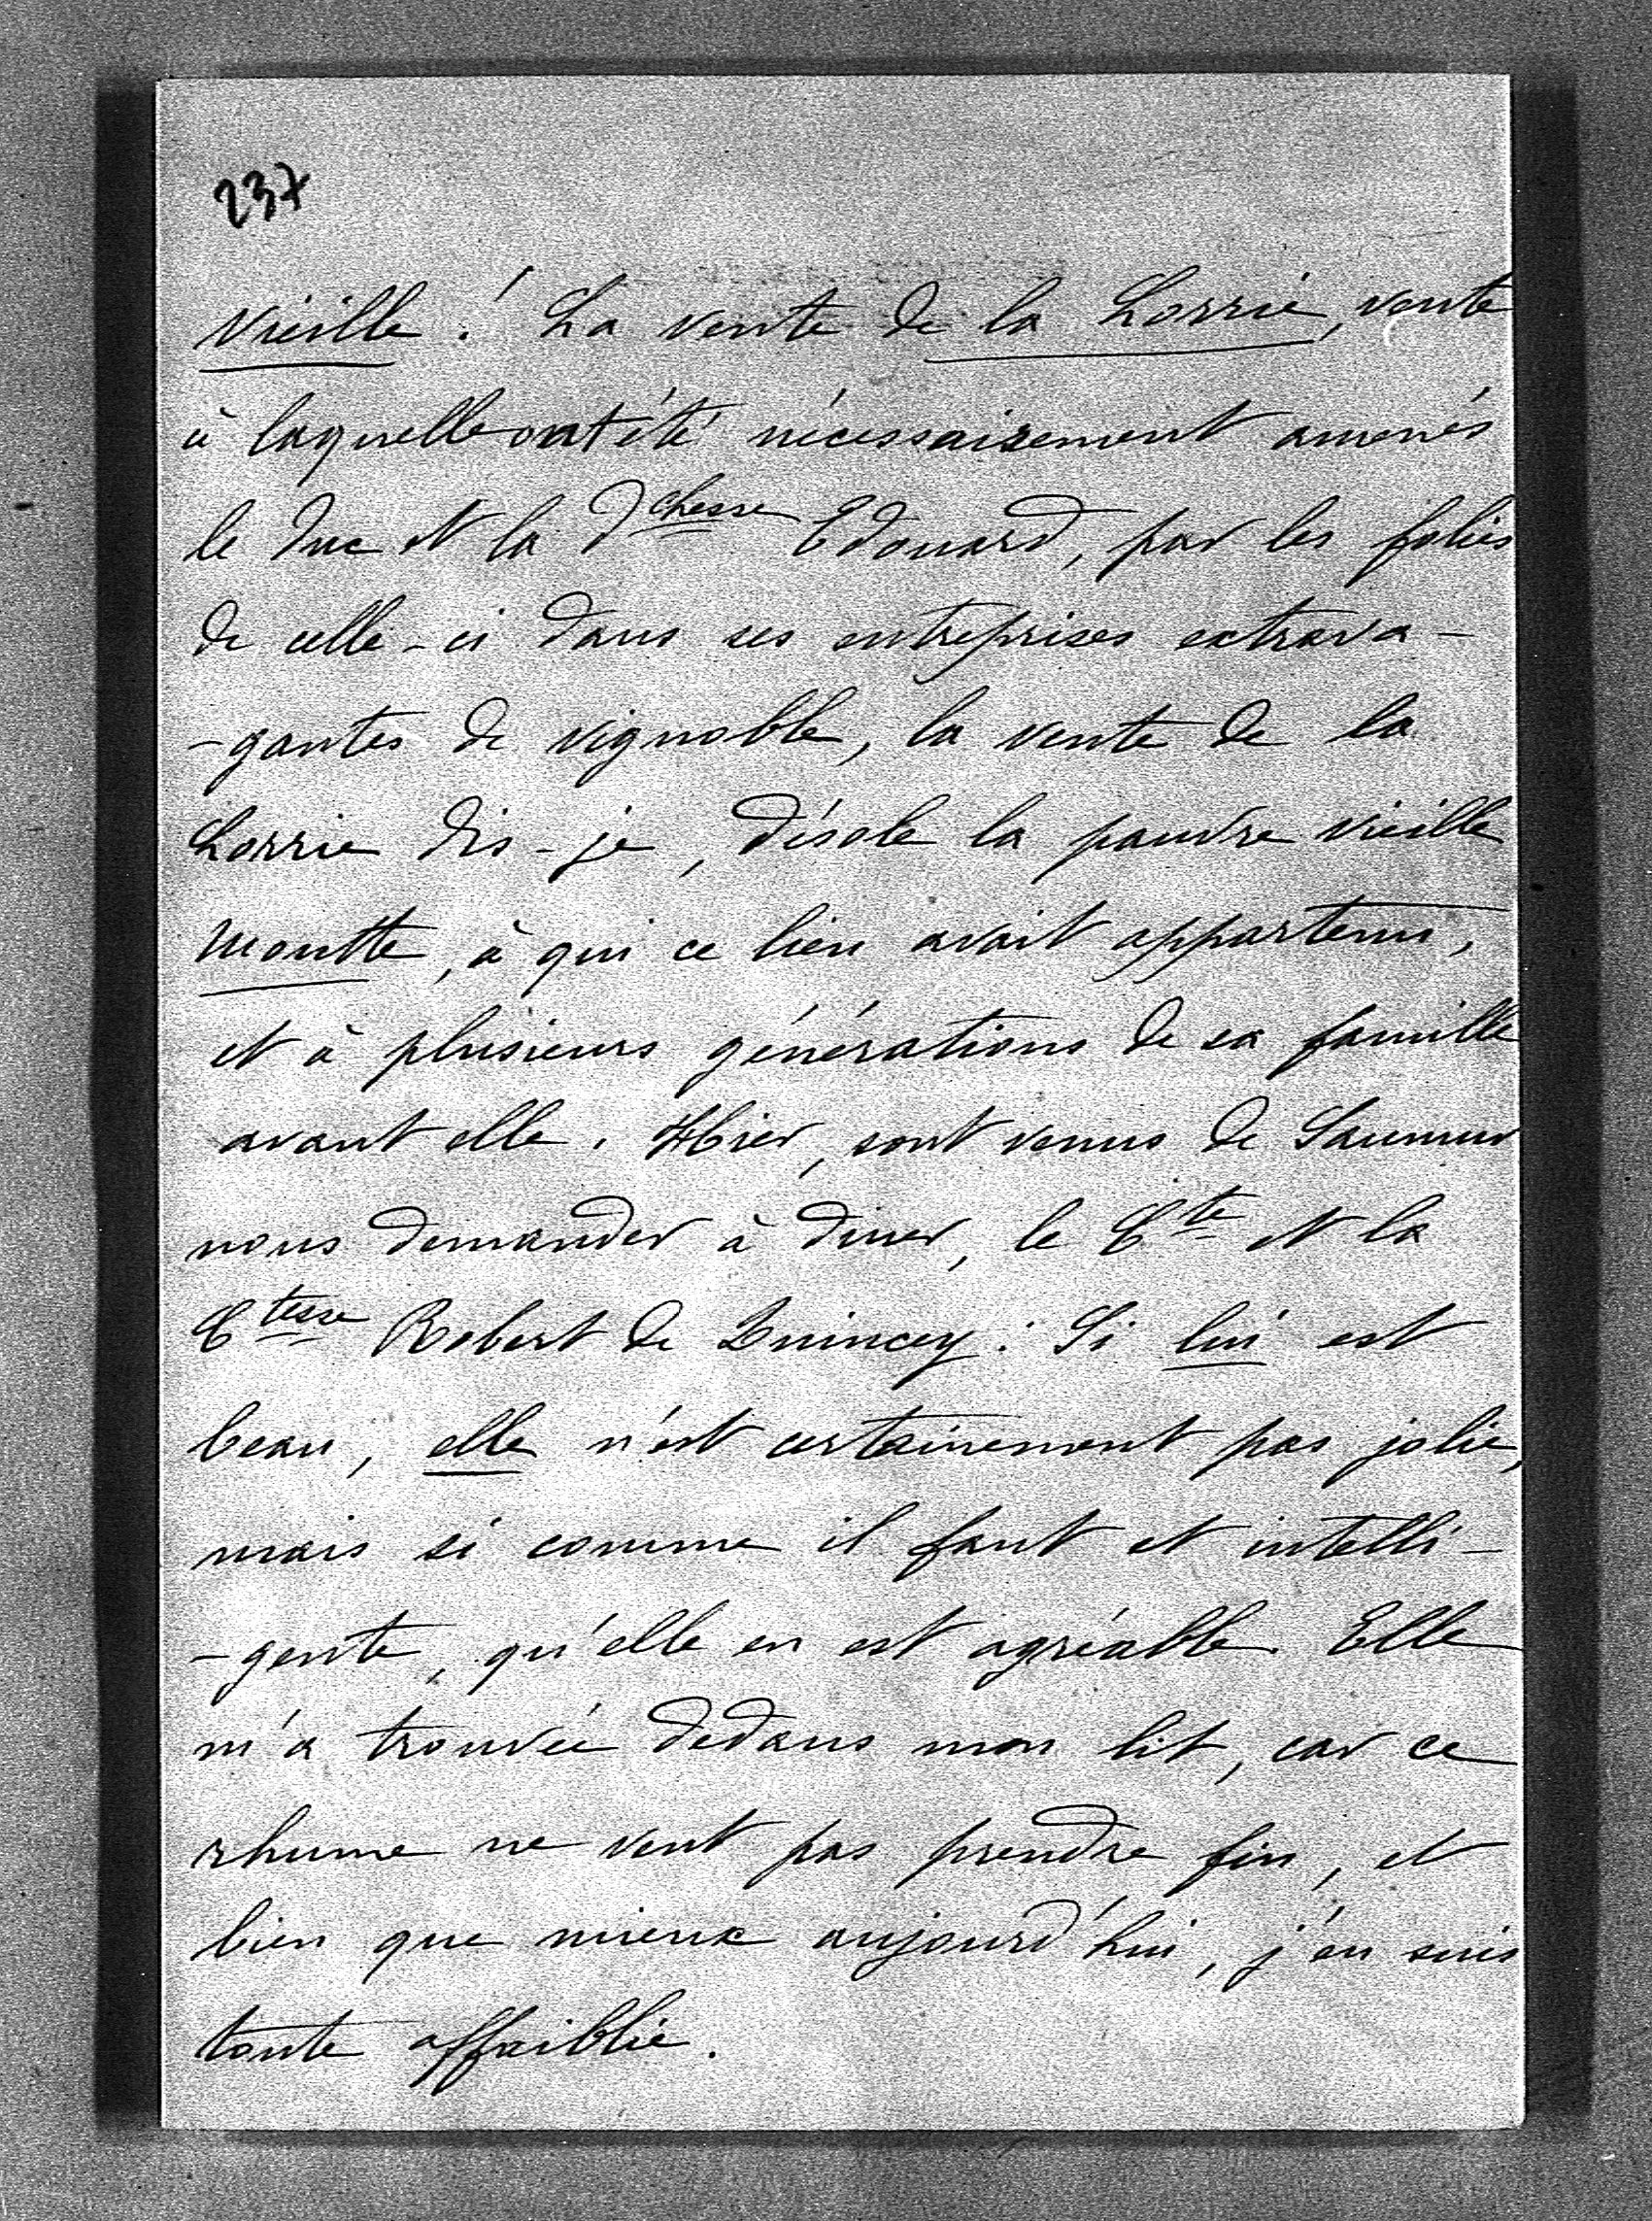 237
Vieille ! La vente de la Lorrie, vente
à laquelle ont été nécessairement amenés
le Duc et la Dchesse Edouard, par les folies
de celle-ci dans ses entreprises extrava-
-gantes de vignoble, la vente de la
Lorrie dis-je, désole la pauvre vieille
Moutte, à qui ce bien avait appartenu,
et à plusieurs générations de sa famille
avant elle. Hier, sont venus de Saumur
nous demander à diner, le Cte et la
Ctesse Robert de Quincey : Si lui est
beau, elle n'est certainement pas jolie,
mais si comme il faut et intelli-
-gente, qu'elle en est agréable. Elle
m'a trouvée dedans mon lit, car ce
rhume ne veut pas prendre fin, et
bien que mieux aujourd'hui, j'en suis
toute affaiblie.